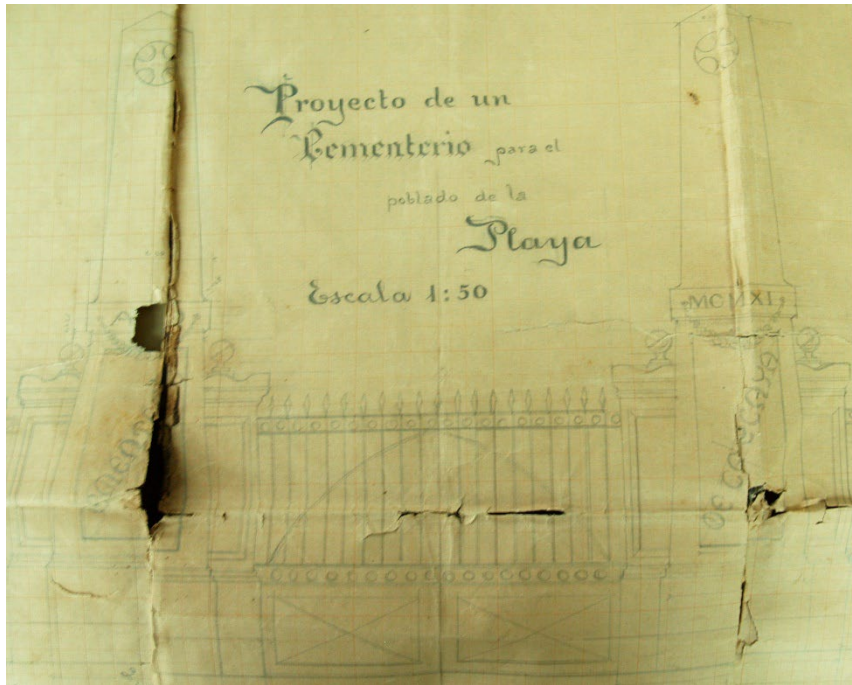 Proyecto de un
Cementerio para el
poblado de la
Playa
Escala 1:50
MCMXI